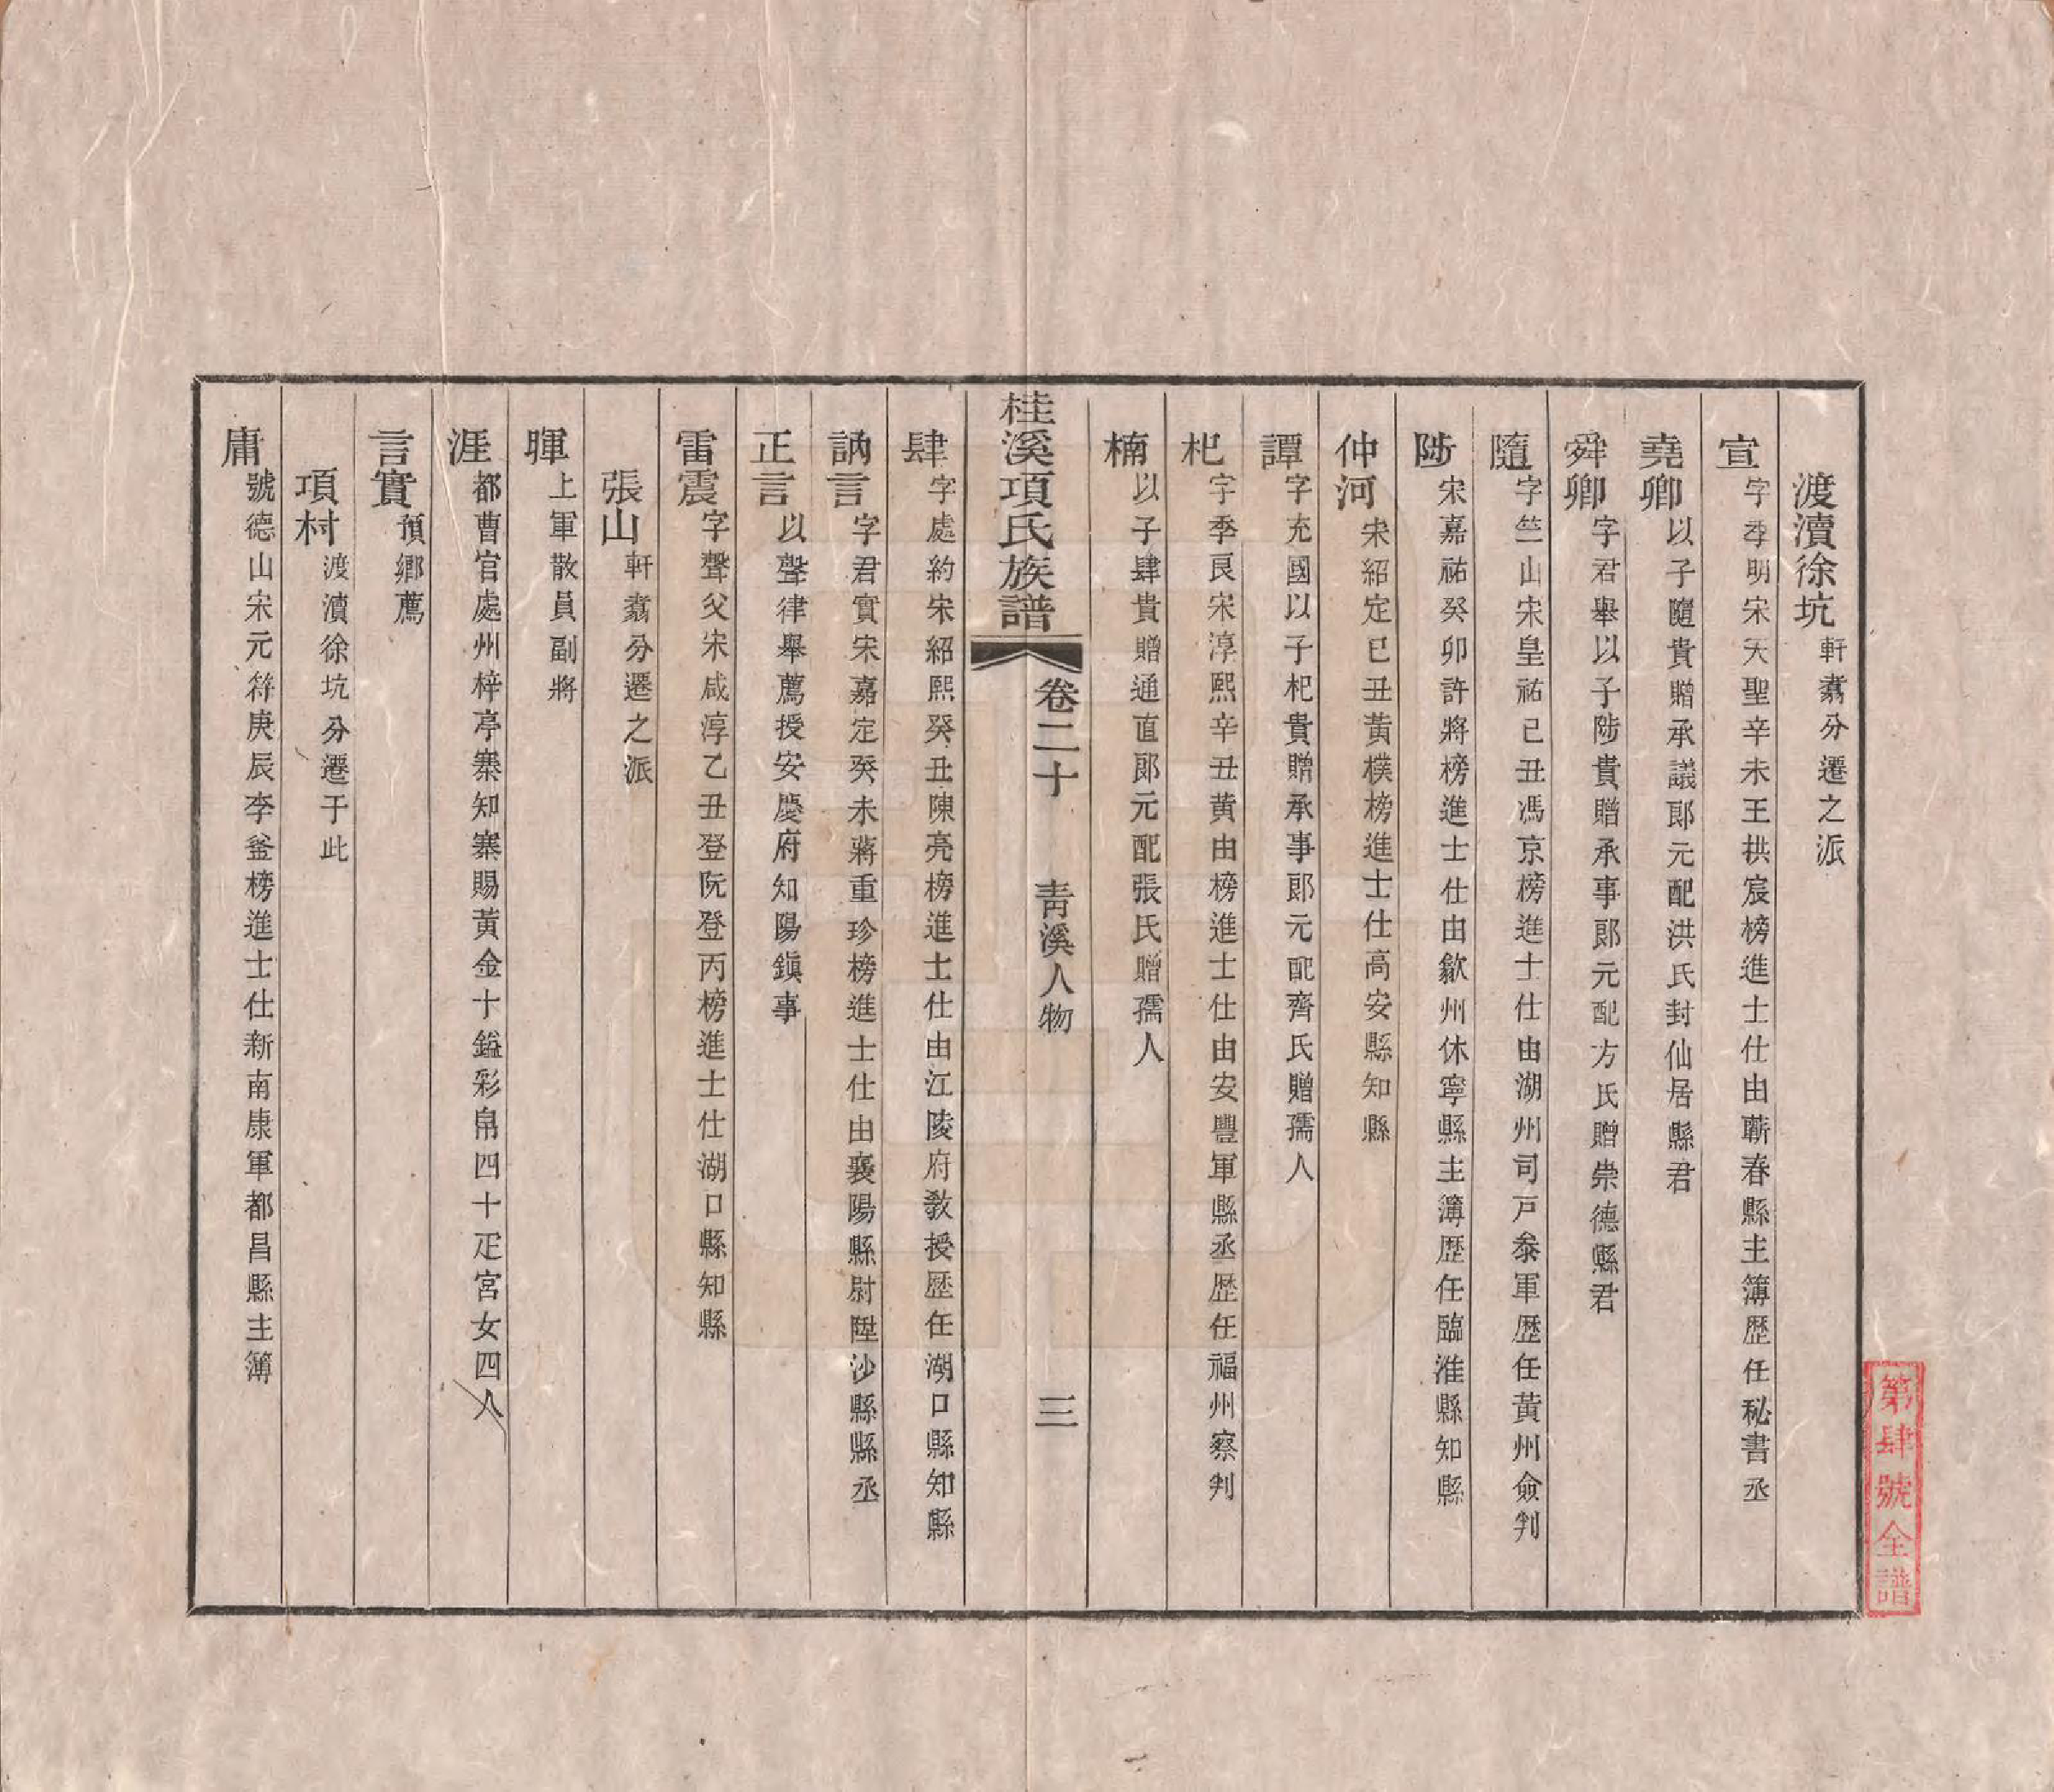 渡瀆徐坑軒翥分遷之派
宣字季明宋天聖辛未王拱宸榜進士仕由蘄春縣主簿歷任秘書丞
堯卿以子隨貴贈承議郎元配洪氏封仙居縣君
舜卿字君舉以子陟貴贈承事郎元配方氏贈崇德縣君
隨字竺山宋皇祐己丑馮京榜進士仕由湖州司戸叅軍歷任黃州僉判
陟宋嘉祐癸卯許將榜進士仕由歙州休寧縣主簿歷任臨淮縣知縣
仲河宋紹定己丑黃樸榜進士仕高安縣知縣
譚字充國以子杞貴贈承事郎元配齊氏贈孺人
杞字季良宋淳熙辛丑黃由榜進士仕由安豐軍縣丞歷任福州察判
楠以子肆貴贈通直郎元配張氏贈孺人
桂溪項氏族譜 卷二十 青溪人物 三
肆字處約宋紹熙癸丑陳亮榜進士仕由江陵府敎授歷任湖口縣知縣
訥言字君實宋嘉定癸未蔣重珍榜進士仕由襄陽縣尉陞沙縣縣丞
正言以聲律舉薦授安慶府知陽鎭事
雷震字聲父宋咸淳乙丑登阮登丙榜進士仕湖口縣知縣
張山軒翥分遷之派
暉上軍散員副將
涯都曹官處州梓亭寨知寨賜黃金十鎰彩帛四十疋宮女四人
言實預鄉薦
項村渡瀆徐坑分遷于此
庸號德山宋元符庚辰李釜榜進士仕新南康軍都昌縣主簿
第肆號全譜